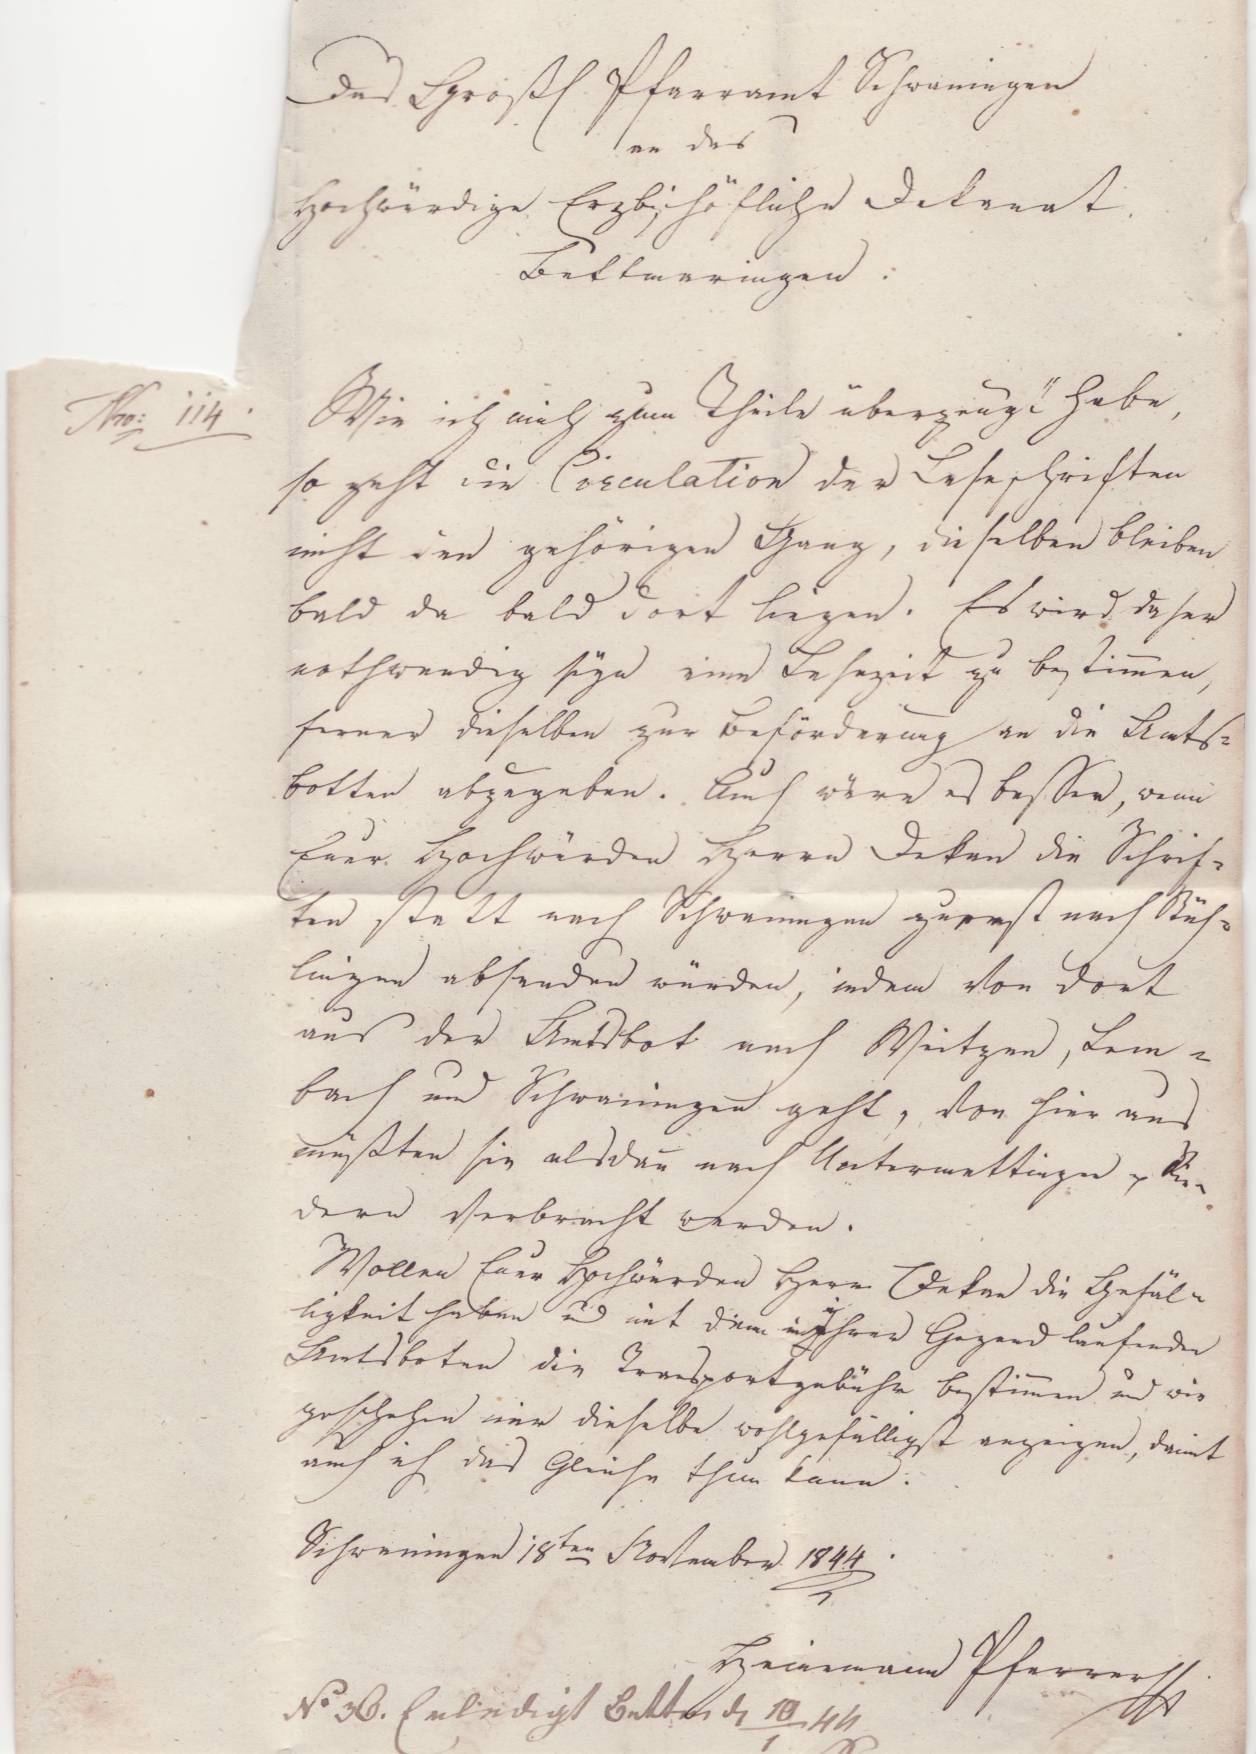 Das Großh. Pfarramt Schwaningen
an das
Hochwürdige Erzbischöfliche Dekanat
Bettmaringen.
Nro: 114.
Wie ich mich zum Theile überzeugt habe,
so geht die Circulation der Leseschriften
nicht den gehörigen Gang, dieselben bleiben
bald da bald dort liegen. Es wird daher
nothwendig seyn eine Lesezeit zu bestimmen,
ferner dieselben zur Beförderung an die Amts=
botten abzugeben. Auch wäre es besser, wenn
Euer Hochwürden Herrn Dekan die Schrif=
ten statt nach Schwaningen zuerst nach Stüh=
lingen absenden würden, indem von dort
aus der Amtsbot nach Weitzen, Lem=
bach und Schwaningen geht, von hier aus
müßten sie alsdann nach Untermettingen, Rie=
dern verbracht werden.
Wollen Euer Hochwürden Herr Dekan die Gefäl=
ligkeit haben u mit dem in Ihrer Gegend laufenden
Amtsboten die Transportgebühr bestimmen und wie
geschehen mir dieselbe wohlgefälligst anzeigen, damit
auch ich das Gleiche thun kann.
Schwaningen 18ten November 1844.
Heinemann Pfarrer
No 36. Erledigt Bettm. d 44